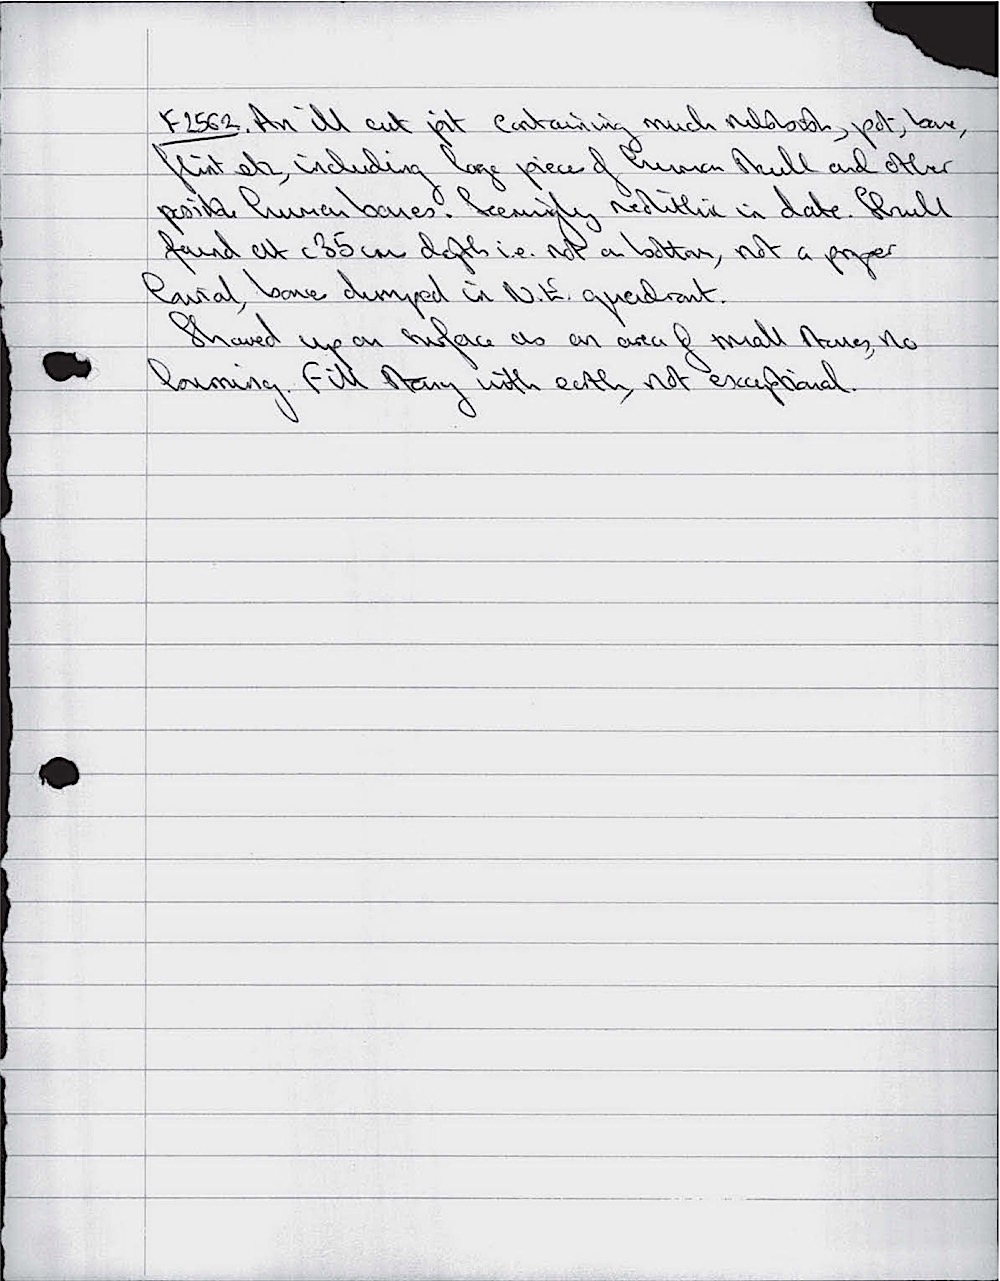 F2562. An ill cut pit containing much pot, bone,
flint etc, including large piece of human skull and other
possible human bones. Seemingly neolithic in date. Skull
found at c35cm depth i.e. not on bottom, not a proper
burial, bone dumped in N.E. quadrant.
Showed up on surface as an area of small stones, no
loaming. Fill stony with earth, not exceptional.